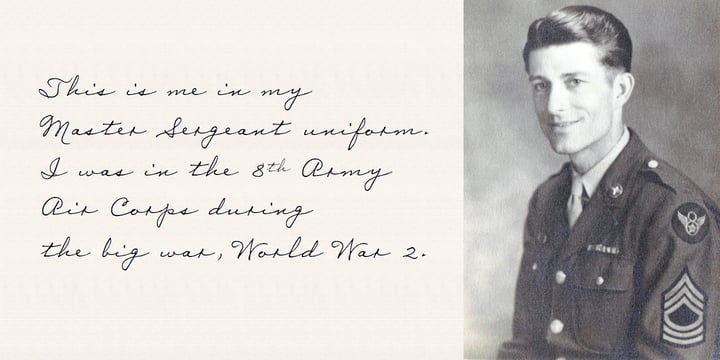 This is me in my
Master Sergeant uniform.
I was in the 8th Army
Air Corps during
the big war, World War 2.